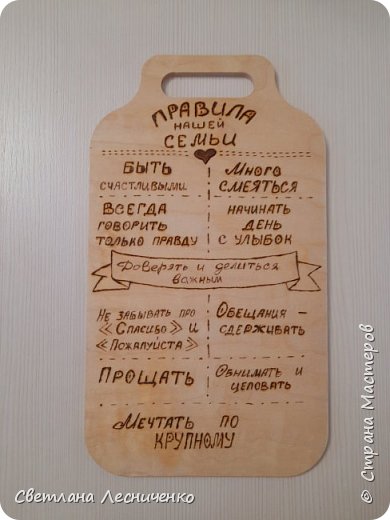 ПРАВИЛА
НАШЕЙ
СЕМЬИ
БЫТЬ
СЧАСТЛИВЫМИ
МНОГО
СМЕЯТЬСЯ
ВСЕГДА
ГОВОРИТЬ
ТОЛЬКО ПРАВДУ
НАЧИНАТЬ
ДЕНЬ
С УЛЫБОК
Доверять и делиться
важным
НЕ ЗАБЫВАТЬ ПРО
«СПАСИБО» И
«ПОЖАЛУЙСТА»
ОБЕЩАНИЯ –
СДЕРЖИВАТЬ
ПРОЩАТЬ
ОБНИМАТЬ И
ЦЕЛОВАТЬ
МЕЧТАТЬ ПО
КРУПНОМУ
Светлана Лесниченко
© Страна Мастеров